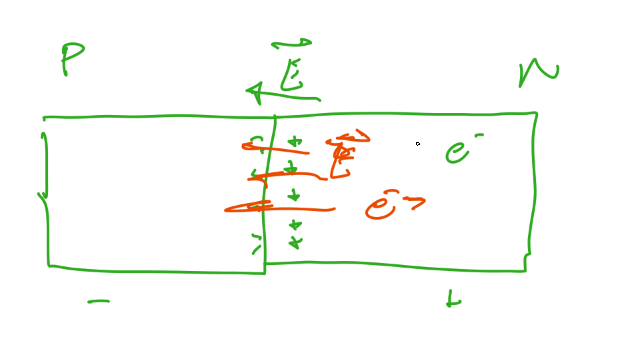 P E N
+
+ E
+ e⁻
+ e⁻
+
- +